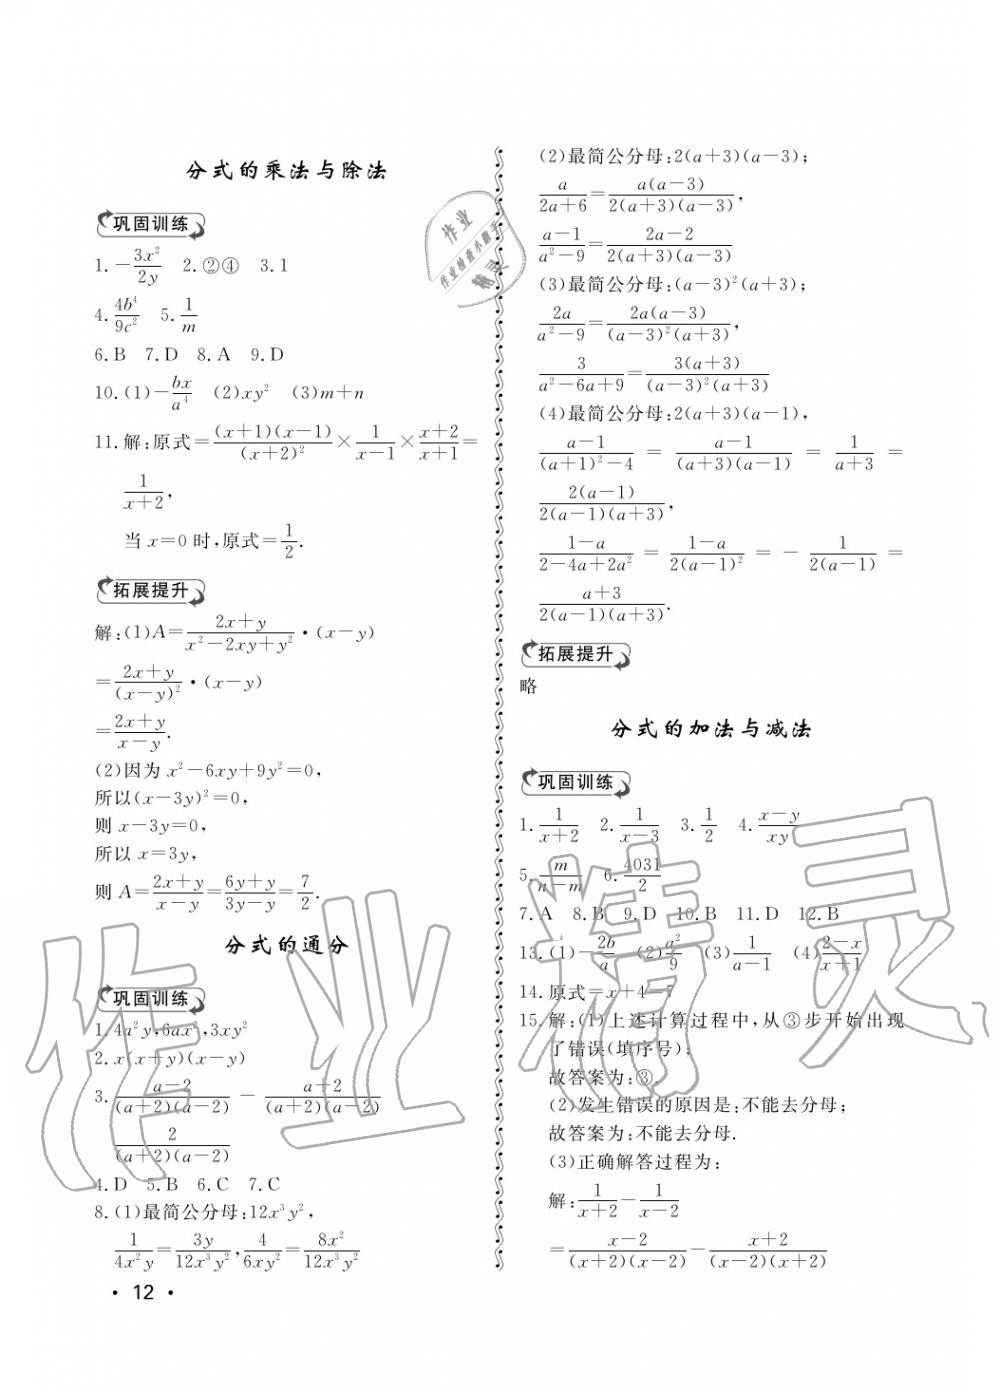 分式的乘法与除法
巩固训练
1. -3x²/2y  2. ②④  3. 1
4. 4b⁴/9c²  5. 1/m
6. B  7. D  8. A  9. D
10. (1)-bx/a⁴  (2)xy²  (3)m+n
11. 解:原式=(x+1)(x-1)/(x+2)²×1/(x-1)×(x+2)/(x+1)=
1/(x+2),
当 x=0 时,原式=1/2.
拓展提升
解:(1)A=(2x+y)/(x²-2xy+y²)·(x-y)
=(2x+y)/(x-y)²·(x-y)
=(2x+y)/(x-y).
(2)因为 x²-6xy+9y²=0,
所以(x-3y)²=0,
则 x-3y=0,
所以 x=3y,
则 A=(2x+y)/(x-y)=(6y+y)/(3y-y)=7/2.
分式的通分
巩固训练
1. 4a²y,6ax²,3xy²
2. x(x+y)(x-y)
3. (a-2)/(a+2)(a-2)  -(a+2)/(a+2)(a-2)
2/(a+2)(a-2)
4. D  5. B  6. C  7. C
8. (1)最简公分母:12x³y²,
1/4x²y=3y/12x³y²,4/6xy²=8x²/12x³y²
· 12 ·
(2)最简公分母:2(a+3)(a-3);
a/(2a+6)=a(a-3)/2(a+3)(a-3),
(a-1)/(a²-9)=(2a-2)/2(a+3)(a-3)
(3)最简公分母:(a-3)²(a+3);
2a/(a²-9)=2a(a-3)/(a-3)²(a+3),
3/(a²-6a+9)=3(a+3)/(a-3)²(a+3)
(4)最简公分母:2(a+3)(a-1),
(a-1)/((a+1)²-4)=(a-1)/(a+3)(a-1)=1/(a+3)=
2(a-1)/2(a-1)(a+3),
(1-a)/(2-4a+2a²)=(1-a)/2(a-1)²=-1/2(a-1)=
(a+3)/2(a-1)(a+3).
拓展提升
略
分式的加法与减法
巩固训练
1. 1/(x+2)  2. 1/(x-3)  3. 1/2  4. (x-y)/xy
5. m/(n-m)  6. 4031/2
7. A  8. B  9. D  10. B  11. D  12. B
13. (1)-2b/a  (2)a²/9  (3)1/(a-1)  (4)(2-x)/(x+1)
14. 原式=x+4=7
15. 解:(1)上述计算过程中,从③步开始出现
了错误(填序号);
故答案为:③.
(2)发生错误的原因是:不能去分母;
故答案为:不能去分母.
(3)正确解答过程为:
解:1/(x+2)-1/(x-2)
=(x-2)/(x+2)(x-2)-(x+2)/(x-2)(x+2)
作业
作业检查小助手
精灵
作业精灵